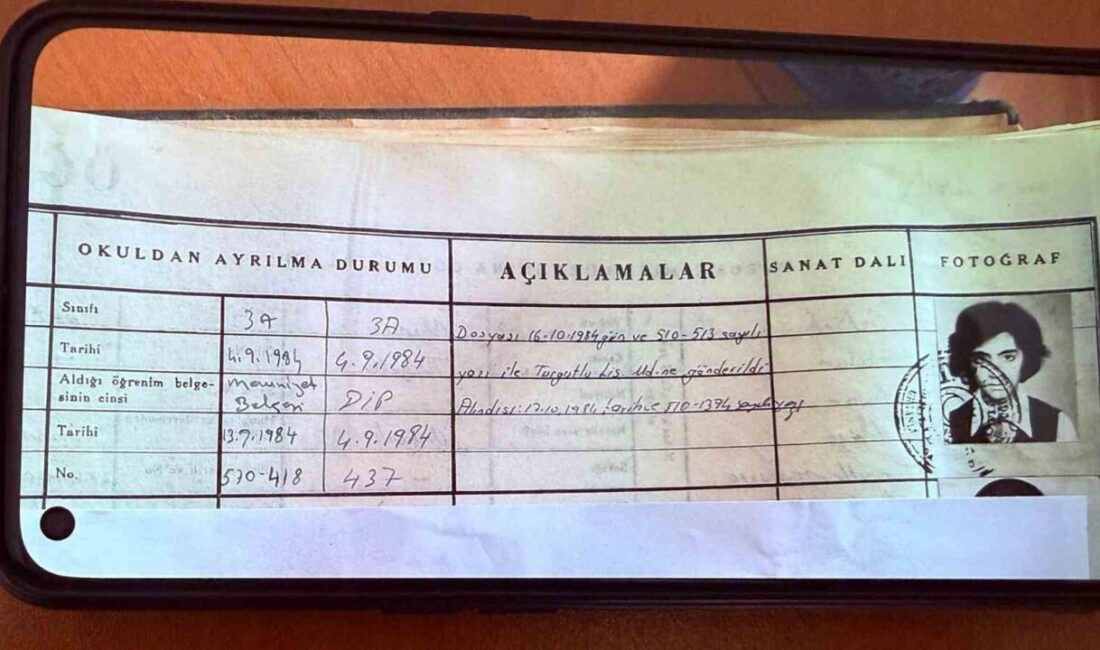 OKULDAN AYRILMA DURUMU
AÇIKLAMALAR
SANAT DALI
FOTOĞRAF
Sınıfı
3A
3A
Tarihi
4.9.1984
4.9.1984
Aldığı öğrenim belge-
sinin cinsi
Mezuniyet
Belgesi
DİP
Tarihi
13.9.1984
4.9.1984
No.
570-418
437
Dosyası 16.10.1984 gün ve 510-513 sayılı
yazı ile Turgutlu Lis. Md.ne gönderildi.
Alındısı: 17.10.1984 tarih ve 510-1374 sayılı yazı